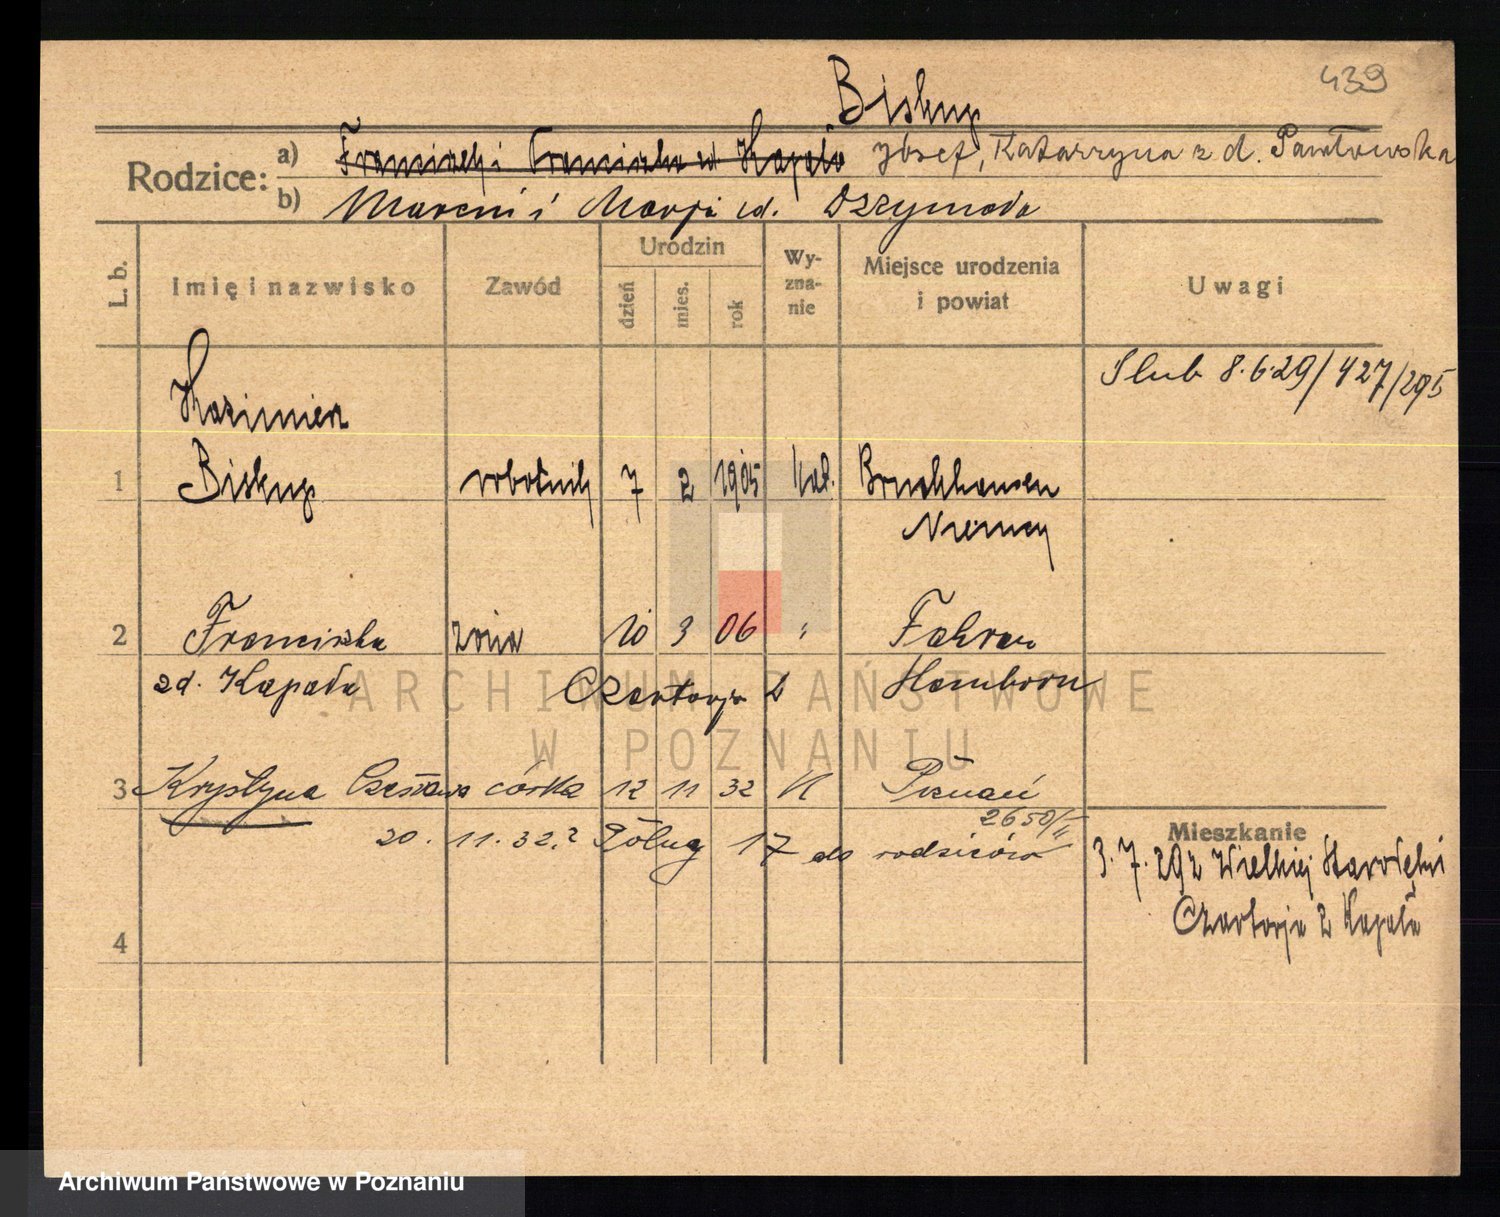 439
Biskup
Rodzice:
a) Franciszek i Franciszka zd Kapała Józef, Katarzyna z d. Pawłowska
b) Marcin i Marja zd.
L. b.
Imię i nazwisko
Zawód
Urodzin
dzień
mies.
rok
Wy-
zna-
nie
Miejsce urodzenia
i powiat
Uwagi
Ślub 8.6.29/427/295
Kazimierz
1 Biskup robotnik 7 2 1905 kat. Bruckhausen
Niemcy
2 Franciszka żona 10 3 06 " Fahran
zd. Kapała Czartorja 2 Hamborn
3 Krystyna Czesława córka 12 11 32 K Poznań
2650/II
20. 11. 32. z Polnej 17 do rodziców
Mieszkanie
3.7.29 z Wielkiej Starołęki
Czartorja 2 Kapała
4
ARCHIWUM PAŃSTWOWE
W POZNANIU
Archiwum Państwowe w Poznaniu